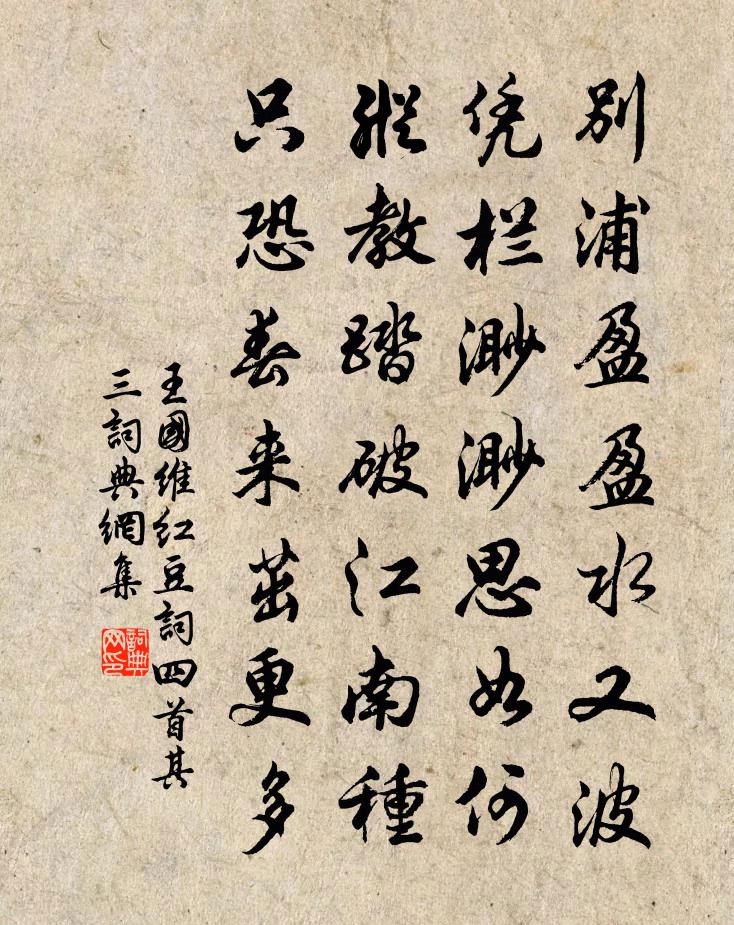 別浦盈盈水又波
凭栏渺渺思如何
縱教踏破江南種
只恐春来茁更多
王國維紅豆詞四首其
三詞典網集
詞典
网印